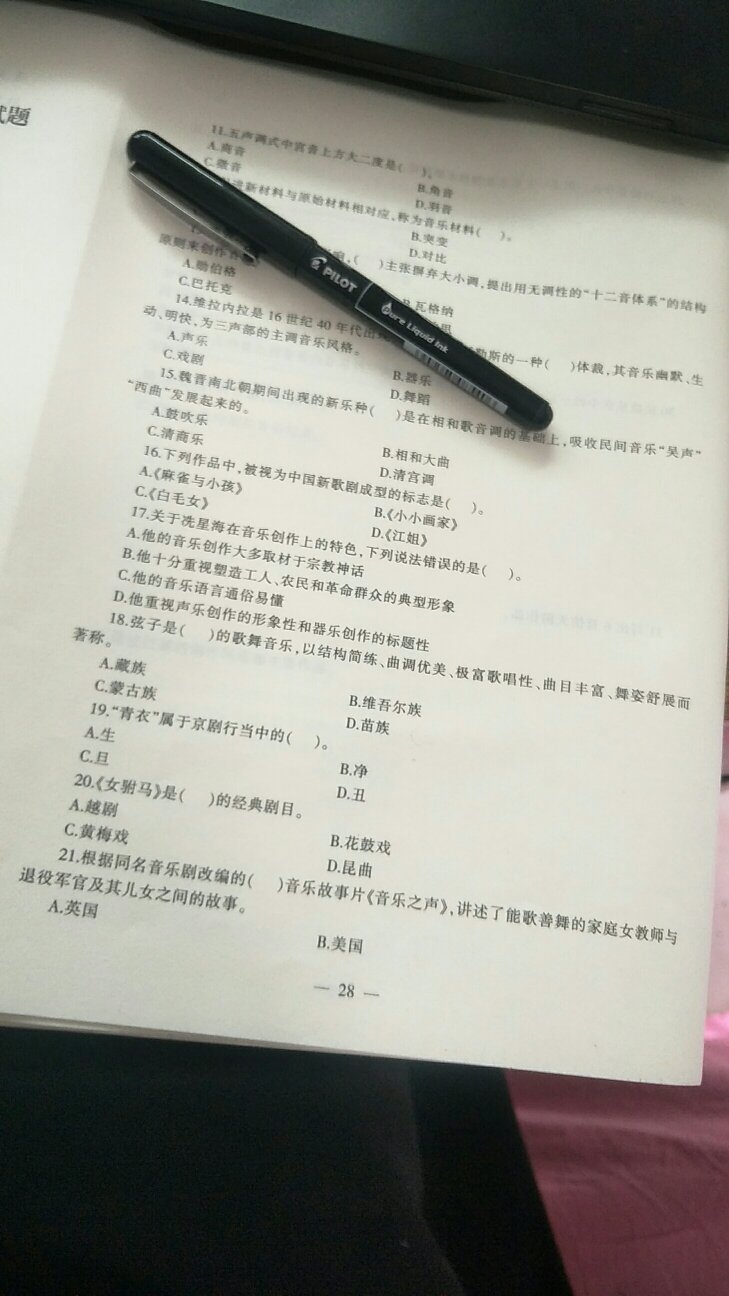 试题
11.五声调式中宫音上方大二度是( )。
A.商音
B.角音
C.徵音
D.羽音
新材料与原始材料相对应,称为音乐材料( )。
B.突变
D.对比
( )主张摒弃大小调,提出用无调性的“十二音体系”的结构
原则来创作音
A.勋伯格
B.瓦格纳
C.巴托克
14.维拉内拉是16世纪40年代出 勒斯的一种( )体裁,其音乐幽默、生
动、明快,为三声部的主调音乐风格。
A.声乐
B.器乐
C.戏剧
D.舞蹈
15.魏晋南北朝期间出现的新乐种( )是在相和歌音调的基础上,吸收民间音乐“吴声”
“西曲”发展起来的。
A.鼓吹乐
B.相和大曲
C.清商乐
D.清宫调
16.下列作品中,被视为中国新歌剧成型的标志是( )。
A.《麻雀与小孩》
B.《小小画家》
C.《白毛女》
D.《江姐》
17.关于冼星海在音乐创作上的特色,下列说法错误的是( )。
A.他的音乐创作大多取材于宗教神话
B.他十分重视塑造工人、农民和革命群众的典型形象
C.他的音乐语言通俗易懂
D.他重视声乐创作的形象性和器乐创作的标题性
18.弦子是( )的歌舞音乐,以结构简练、曲调优美、极富歌唱性、曲目丰富、舞姿舒展而
著称。
A.藏族
B.维吾尔族
C.蒙古族
D.苗族
19.“青衣”属于京剧行当中的( )。
A.生
B.净
C.旦
D.丑
20.《女驸马》是( )的经典剧目。
A.越剧
B.花鼓戏
C.黄梅戏
D.昆曲
21.根据同名音乐剧改编的( )音乐故事片《音乐之声》,讲述了能歌善舞的家庭女教师与
退役军官及其儿女之间的故事。
A.英国
B.美国
— 28 —
PILOT
Pure Liquid Ink